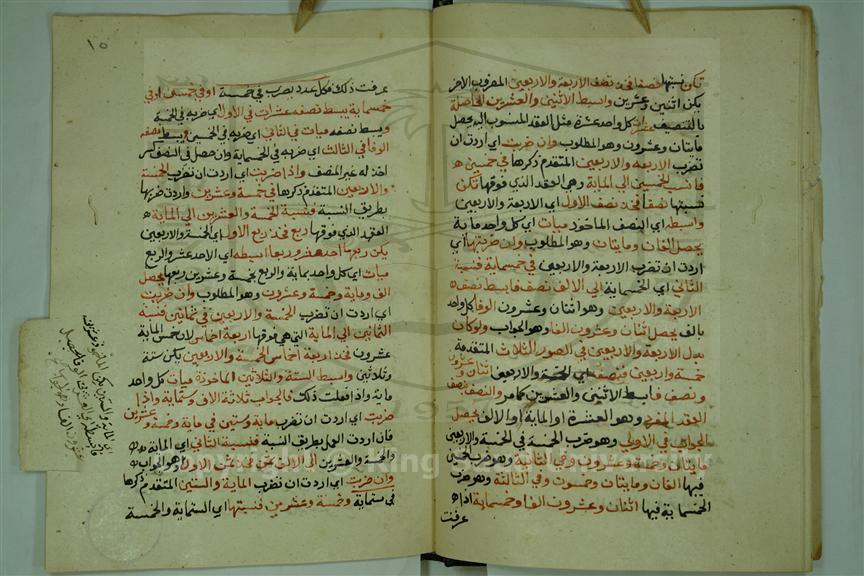 تكن نسبتها نصفا فخذ نصف الاربعة والاربعين المضروب الاخر
يكن اثنين وعشرين وابسط الاثنين والعشرين الحاصلة
بالتنصيف عشرات كل واحد عشرة مثل العقد المنسوب اليه يحصل
مايتان وعشرون وهو المطلوب وان ضربت اي اردت ان
تضرب الاربعة والاربعين المتقدم ذكرها في خمسين
فانسب الخمسين الي الماية وهي العقد الذي فوقها تكن
نسبتها نصفا فخذ نصف الاول اي الاربعة والاربعين
وابسطه اي النصف الماخوذ ميات اي كل واحد ماية
يحصل الفان ومايتان وهو المطلوب وان ضربتها اي
اردت ان تضرب الاربعة والاربعين في خمسماية فنسبة
الثاني اي الخمسماية الي الالف نصف فابسط نصف
الاربعة والاربعين وهو اثنان وعشرون الوفا كل واحد
بالف يحصل اثنان وعشرون الفا وهو الجواب ولو كان
بدل الاربعة والاربعين في الصور الثلاث المتقدمة
خمسة واربعين فنصف اي الخمسة والاربعين اثنان وعشرون
ونصف فابسط الاثنين والعشرين كما مر والنصف نصف
العقد المفرد وهو العشرة او الماية او الالف يحصل
الجواب في الاولي وهو ضرب الخمسة في الخمسة والاربعين
مايتان وخمسة وعشرون وفي الثانية وهو ضرب الخمسين
فيها الفان ومايتان وخمسون وفي الثالثة وهو ضرب
الخمسماية فيها اثنان وعشرون الفا وخمسماية اذا
عرفت
١٥
عرفت ذلك فكل عدد يضرب في خمسة او في خمسين او في
خمسماية يبسط نصفه عشرات في الاول اي ضربه في الخمسة
ويبسط نصفه ميات في الثاني اي ضربه في الخمسين ويبسط نصفه
الوفا في الثالث اي ضربه في الخمسماية وان حصل في النصف كسر
اخذ له من المنصف واذا ضربت اي اردت ان تضرب الخمسة
والاربعين المتقدم ذكرها في خمسة وعشرين واردت ضربها
بطريق النسبة فنسبة الخمسة والعشرين الي الماية
العقد الذي فوقها ربع فخذ ربع الاول اي الخمسة والاربعين
يكن ربعها احد عشر وربعا ابسطه اي الاحد عشر والربع
ميات اي كل واحد بماية والربع بخمسة وعشرين ربعها يحصل
الف وماية وخمسة وعشرون وهو المطلوب وان ضربت
اي اردت ان تضرب الخمسة والاربعين في ثمانين فنسبة
الثمانين الي الماية التي هي فوقها اربعة اخماس لان خمس الماية
عشرون فخذ اربعة اخماس الخمسة والاربعين يكن ستة
وثلاثين وابسط الستة والثلاثين الماخوذة ميات كل واحد
ماية واذا فعلت ذلك فالجواب ثلاثة الاف وستماية واذا
ضربت اي اردت ان تضرب ماية وستين في ماية وخمسة وعشرين
فان اردت العمل بطريق النسبة فنسبة الثاني اي الماية
والخمسة والعشرين الي الالف ثمن فخذ ثمن الاول وهو الجواب
وان ضربت اي اردت ان تضرب الماية والستين المتقدم ذكرها
في ستماية وخمسة وعشرين فنسبتها اي الستماية والخمسة